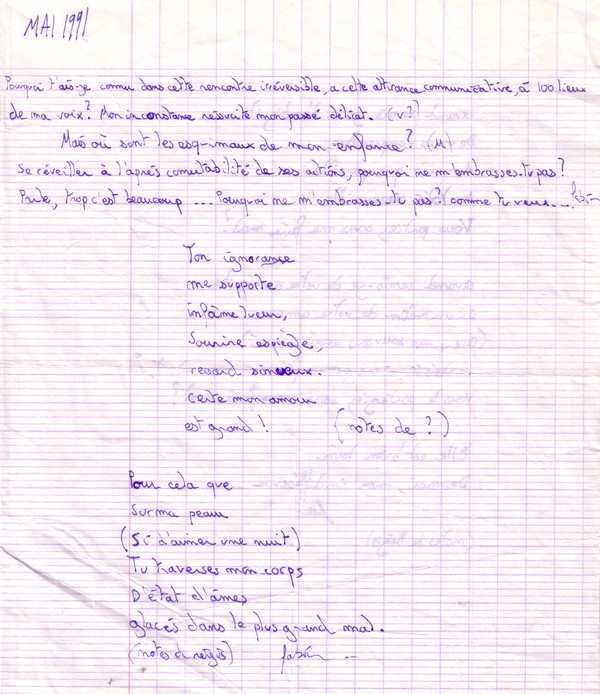 MAI 1991
Pourquoi t'ais-je connu dans cette rencontre irréversible, a cette attirance communicative, à 100 lieux
de ma voix? Mon inconstance réssucite mon passé délicat. (v?)
Mais où sont les esqu-imaux de mon enfance? (M)
Se réveiller à l'après comutabilité de ses actions, pourquoi ne m'embrasses-tu pas?
Parle, trop c'est beaucoup ... Pourquoi ne m'embrasses-tu pas? comme tu veux...
Ton ignorance
me supporte
infâme lueur,
Sourire espiègle,
regard sinueux.
Certe mon amour
est grand! (notes de ?)
Pour cela que
Sur ma peau
(Si d'aimer une nuit)
Tu traverses mon corps
D'état d'âmes
glacés dans le plus grand mal.
(notes de régis)